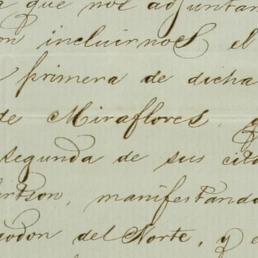 que nos adjuntan
incluirnos el
primera de dicha
de Miraflores,
segunda de sus
manifestando
del Norte, y